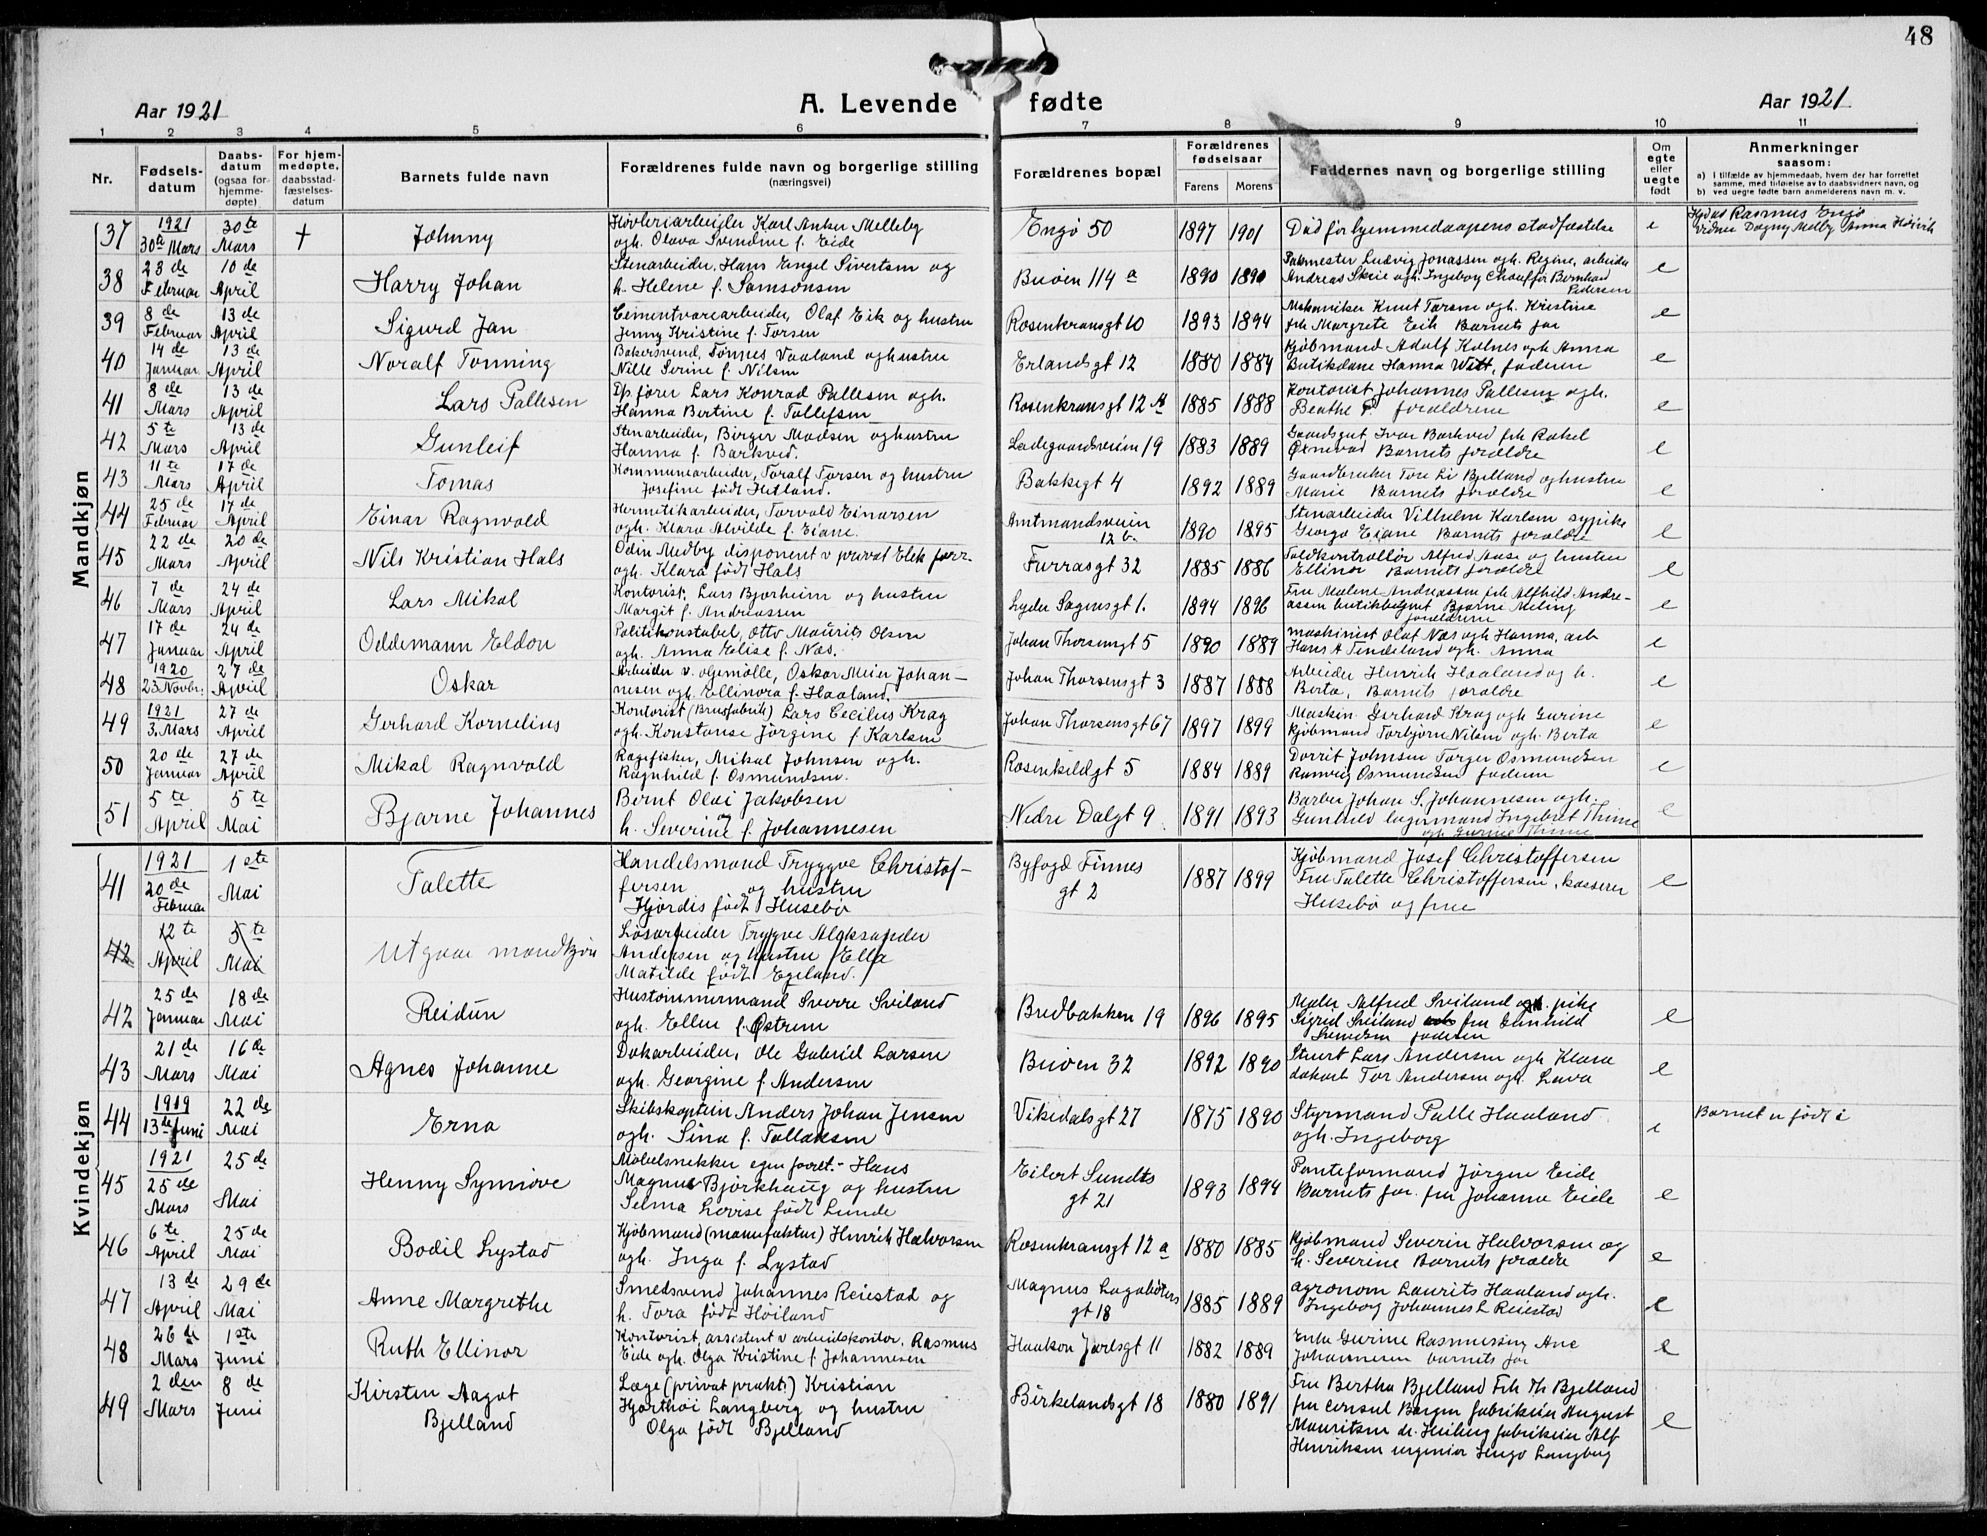 48
Aar 1921
A. Levende fødte
Aar 1921
1 2 3 4 5 6 7 8 9 10 11
Nr.
Fødsels-
datum
Daabs-
datum
(ogsaa for
hjemme-
døpte)
For hjem-
medøpte,
daabsstad-
fæstelses-
datum
Barnets fulde navn
Forældrenes fulde navn og borgerlige stilling
(næringsvei)
Forældrenes bopæl
Forældrenes
fødselsaar
Farens Morens
Faddernes navn og borgerlige stilling
Om
egte
eller
uegte
født
Anmerkninger
saasom:
a) I tilfælde av hjemmedaab, hvem der har forrettet
samme, med tilføielse av to daabsvidners navn, og
b) ved uegte fødte barn anmelderens navn m. v.
Mandkjøn
37 1921 30te Mars 30te Mars † Johnny
Høvleriarbeider Karl Anker Melleby
ogh. Olava Svendine f. Eide
Engø 50 1897 1901 Død før hjemmedaapens stadfæstelse e
Rasmus Engø
Vidner Dagny Melby Anna
38 23de Februar 10de April Harry Johan
Stenarbeider, Hans Engel Sivertsen og
h. Helene f. Samsonsen
Buøen 114 a 1890 1890
Ludvig Jonassen ogh. Regine, arbeider
Andreas Skrie ogh. Ingeborg Chauffør Bernhard
Pedersen e
39 8de Februar 13de April Sigurd Jan
Cementvarearbeider, Olaf Eik og hustru
Jenny Kristine f. Torsen
Rosenkransgt 10 1893 1894
Mekaniker Knut Torsen ogh. Kristine
frk Margrete Eik Barnets far e
40 14de Januar 13de April Noralf Tonning
Bakersvend, Tønnes Vaaland og hustru
Nille Serine f. Nilsen
Erlandsgt 12 1880 1884
Kjøbmand Adolf Kolnes ogh Anna
Butikdame Hanna Witt, faderen e
41 8de Mars 13de April Lars Pallesen
Dp.fører Lars Konrad Pallesen ogh.
Hanna Bertine f. Tollefsen
Rosenkransgt 12 A 1885 1888
Kontorist Johannes Pallesen ogh.
Beathe P. forældrene e
42 5te Mars 13de April Gunleif
Stenarbeider, Birger Madsen og hustru
Hanna f. Barkved.
Ladegaardsveien 19 1883 1889
Gaardsgut Ivar Barkved frk Rakel
Barnets forældre e
43 11te Mars 17de April Tomas
Kommunearbeider, Toralf Torsen og hustru
Josefine født Hetland.
Bakkegt 4 1892 1889
Gaardbruker Tore Li Bjelland og hustru
Marie Barnets forældre e
44 25de Februar 17de April Einar Ragnvald
Hermetikarbeider, Torvald Einarsen
ogh. Klara Alvilde f. Eiane.
Amtmandsveien
12 b. 1890 1895
Stenarbeider Vilhelm Karlsen sypike
Georga Eiane Barnets forældre e
45 22de Mars 20de April Nils Kristian Hals
Odin Medby disponent v privat Elek forr.
ogh. Klara født Hals
Furrasgt 32 1885 1886
Toldkontrollør Alfred Aase og hustru
Ellinor Barnets forældre e
46 7de Mars 24de April Lars Mikal
Kontorist, Lars Bjørheim og hustru
Margit f. Andreassen
Lyder Sagensgt 1. 1894 1896
Fru Malene Andreassen frk Alfhild Andre-
assen butikbetjent Bjarne Meling
forældrene e
47 17de Januar 24de April Oddemann Eldon
Politikonstabel, Otto Maurits Olsen
ogh. Anna Elise f. Næs.
Johan Thorsensgt 5 1890 1889
Maskinist Olaf Næs ogh Hanna, arb
Hans A Tindeland ogh. Anna e
48 1920 23 Novbr. 27de April Oskar
Arbeider v. oljemølle, Oskar Meier Johan-
nesen ogh. Ellinora f. Haaland.
Johan Thorsensgt 3 1887 1888
Arbeider Henrik Haaland og h.
Berta, Barnets forældre e
49 1921 3. Mars 27de April Gerhard Kornelius
Kontorist (Brusfabrik) Lars Cecilius Krag
ogh. Konstanse Jørgine f. Karlsen
Johan Thorsensgt 67 1897 1899
Maskin. Gerhard Krag ogh Gurine
Kjøbmand Torbjørn Nilsen ogh. Berta e
50 20de Januar 27de April Mikal Ragnvald
Mikal Johnsen ogh.
Ragnhild f. Osmundsen.
Rosenkildegt 5 1884 1889
Dorrit Johnsen Torger Osmundsen
Ranveig Osmundsen faderen e
51 5te April 5te Mai Bjarne Johannes
Bernt Olai Jakobsen og
h. Severine f. Johannesen
Nedre Dalgt 9 1891 1893
Barber Johan S. Johannesen ogh.
Gunhild lagermand Ingebret Thime
ogh Gurine Thime e
Kvindekjøn
41 1921 20de Februar 1ste Mai Talette
Handelsmand Tryggve Christof-
fersen og hustru
Hjørdis født Husebø
Byfogd Finnes
gt 2 1887 1899
Kjøbmand Josef Christoffersen
Fru Talette Christoffersen, kasserer
Husebø og frue e
42 12te April 5te Mai Utgaar mandkjøn
Løsarbeider Trygve Aleksander
Andersen og hustru Ella
Matilde født Egeland.
42 25de Januar 18de Mai Reidun
Hustømmermand Sverre Sviland
ogh. Ellen f. Østrem
Bredbakken 19 1896 1895
Maler Alfred Sviland ogh. pike
Sigrid Sviland fru Gunhild
Svendsen faderen e
43 21de Mars 16de Mai Agnes Johanne
Dokarbeider, Ole Gabriel Larsen
ogh. Georgine f. Andersen
Buøen 32 1892 1890
Stuert Lars Andersen ogh Klara
dokarb Tor Andersen ogh. Lava e
44 1919 13de Juni 22de Mai Erna
Skibskaptein Anders Johan Jensen
ogh. Sina f. Tollaksen
Vikedalsgt 27 1875 1890
Styrmand Palle Haaland
ogh. Ingeborg e
Barnet er født i
45 1921 25de Mars 25de Mai Henny Synnøve
Møbelsnekker egen forret.- Hans
Magnus Bjørkhaug og hustru
Selma Lovise født Lunde
Eilert Sundts
gt 21 1893 1894
Panteformand Jørgen Eide
Barnets far. fru Johanna Eide e
46 6te April 25de Mai Bodil Lystad
Kjøbmand (manufaktur) Henrik Halvorsen
ogh. Inga f. Lystad
Rosenkransgt 12 a 1880 1885
Kjøbmand Severin Halvorsen og
h. Severine Barnets forældre e
47 13de April 29de Mai Anne Margrethe
Smedsvend Johannes Reiestad og
h. Tora født Høiland
Magnus Lagabøters
gt 18 1885 1889
Agronom Laurits Haaland ogh.
Ingeborg Johannes L Reiestad e
48 26de Mars 1ste Juni Ruth Ellinor
Kontorist, assistent v arbeidskontor, Rasmus
Eide ogh. Olga Kristine f Johannesen
Haakon Jarlsgt 11 1882 1889
Enke Gurine Rasmussen Ane
Johannesen barnets far e
49 2den Mars 8de Juni Kirsten Aagot
Bjelland
Læge (privat prakt.) Kristian
Hjorthøi Langberg og hustru
Olga født Bjelland
Birkelandsgt 18 1880 1891
Fru Bertha Bjelland Frk Th Bjelland
fru consul Bergen fabrikeier August
Mauritzen dr. Heiling fabrikeier Alf
Henriksen ingeniør Hugo Langberg e